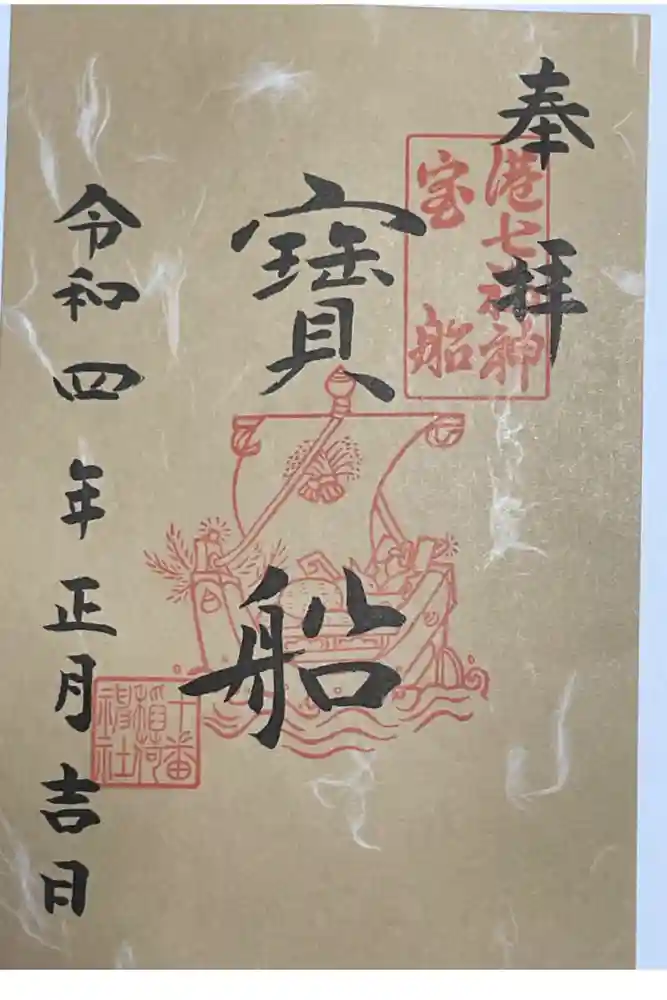 奉拝
港七福神
宝船
寶船
令和四年正月吉日
十番
稲荷
神社